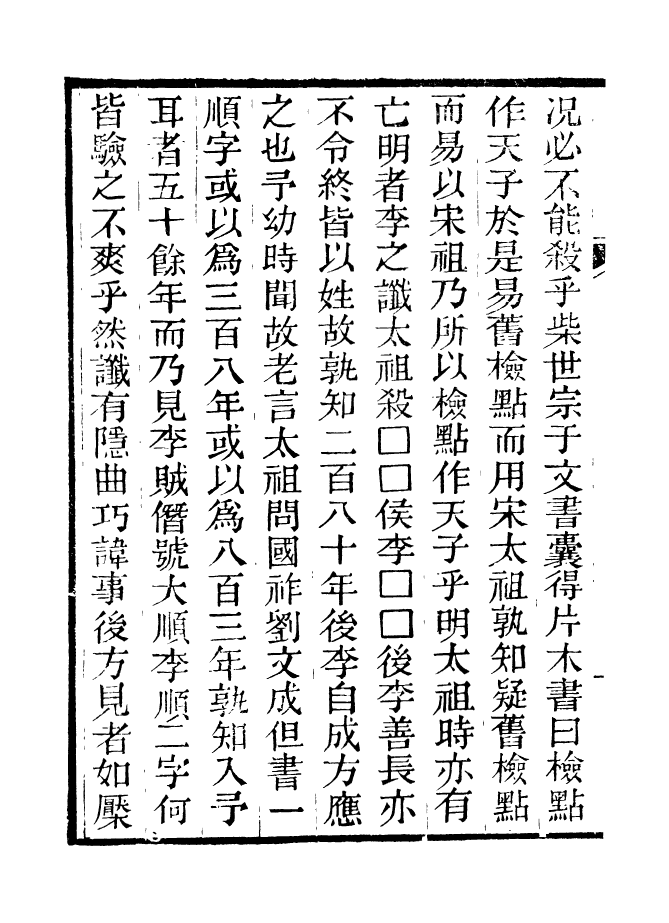 况必不能殺乎柴世宗子文書囊得片木書曰檢點
作天子於是易舊檢點而用宋太祖孰知疑舊檢點
而易以宋祖乃所以檢點作天子乎明太祖時亦有
亡明者李之讖太祖殺□□侯李□□後李善長亦
不令終皆以姓故孰知二百八十年後李自成方應
之也予幼時聞故老言太祖問國祚劉文成但書一
順字或以爲三百八年或以爲八百三年孰知入予
耳者五十餘年而乃見李賊僭號大順李順二字何
皆驗之不爽乎然讖有隱曲巧諱事後方見者如檿